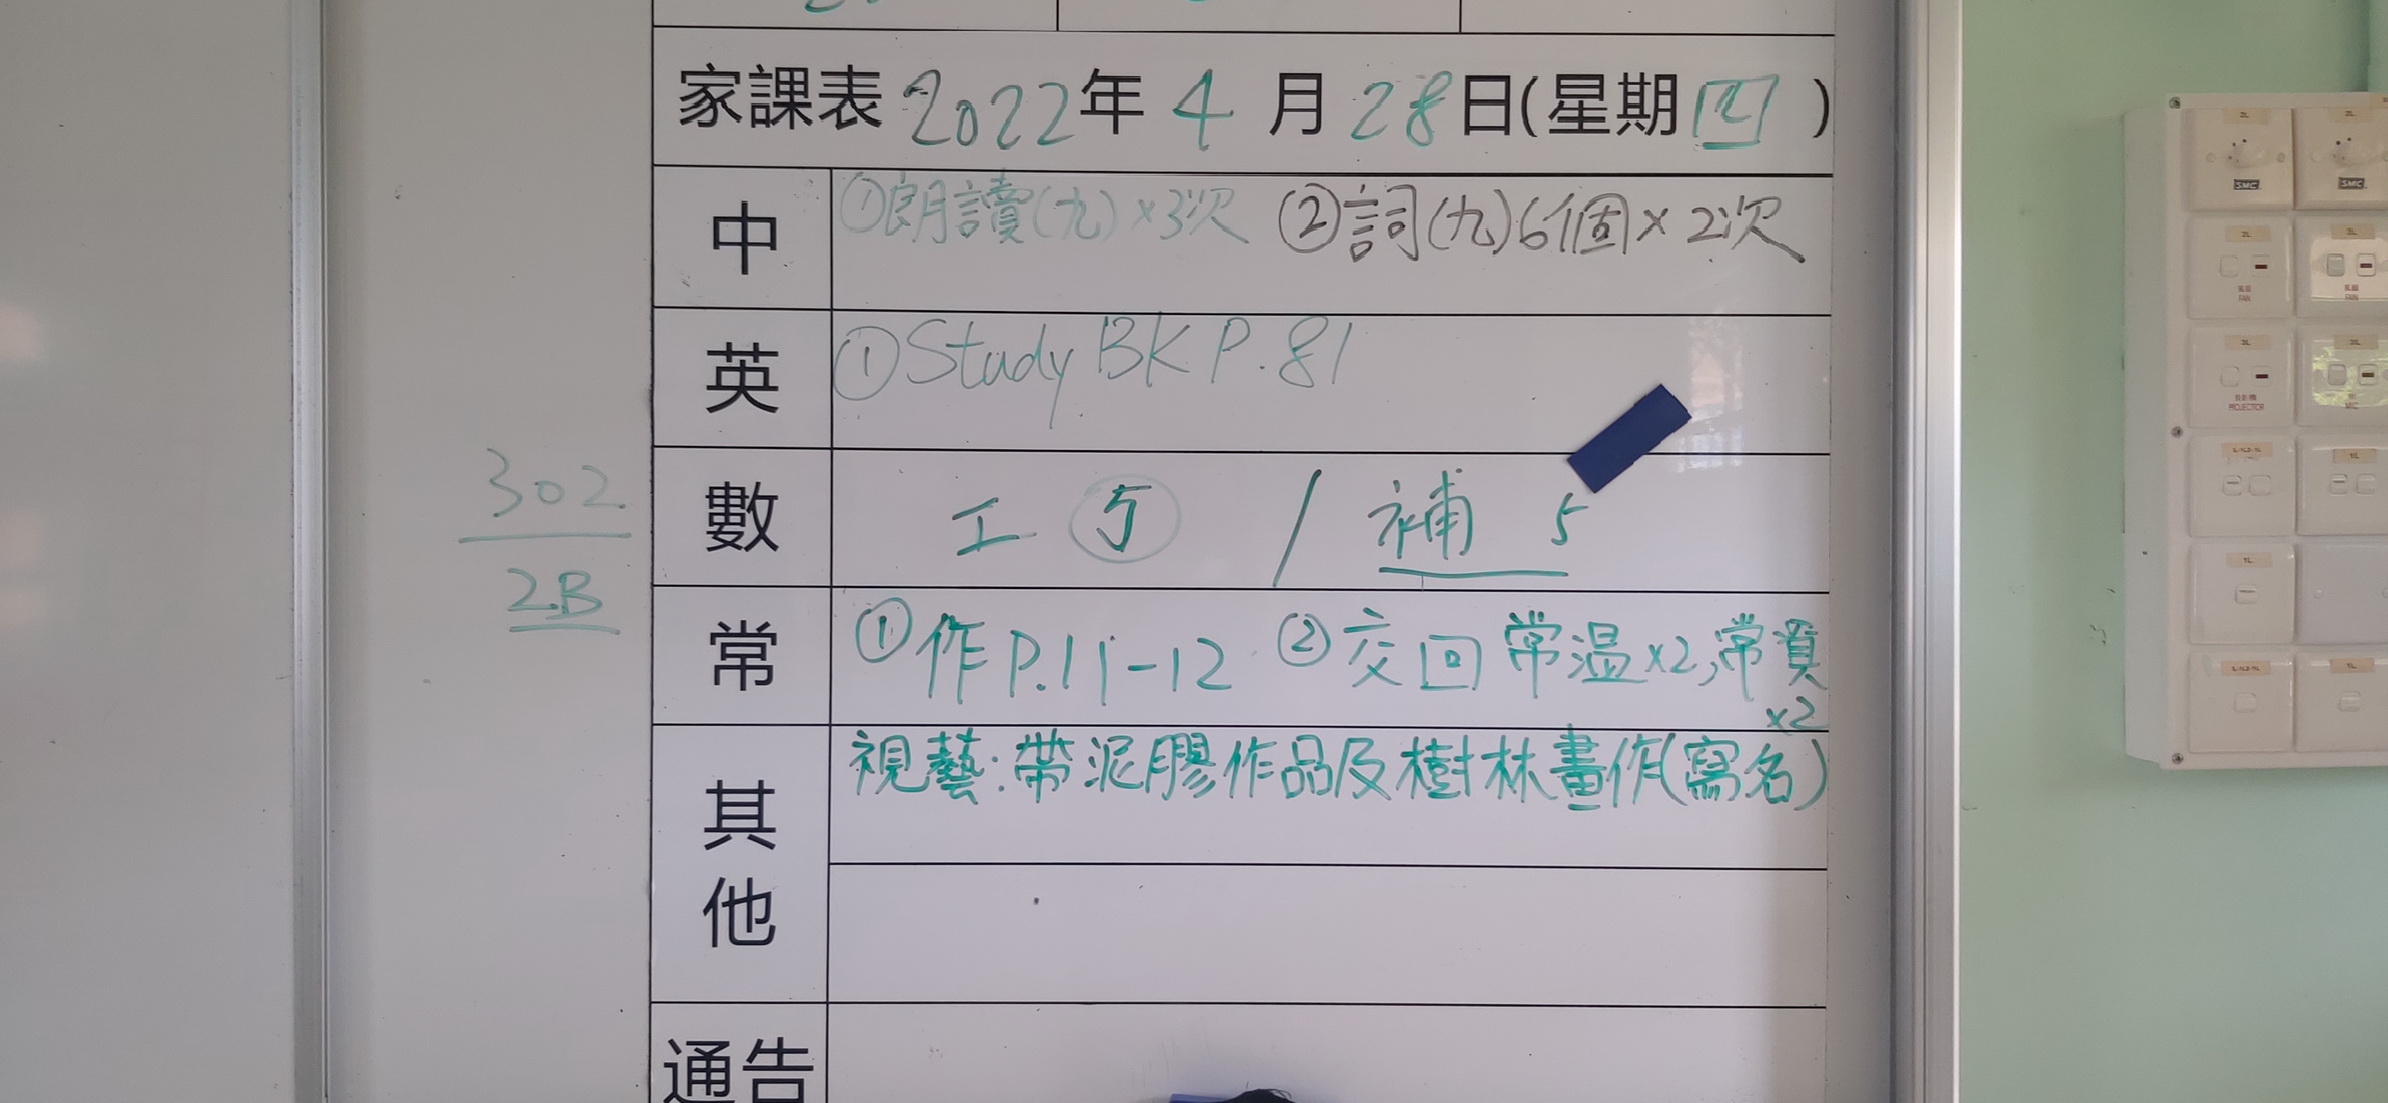 家課表 2022年 4 月 28日(星期四)
中 ①朗讀(九)×3次 ②詞(九)6個×2次
英 ①Study BK P.81
數 工 ⑤ / 補 5
302
2B
常 ①作P.11-12 ②交回常溫×2,常資
×2
其他 視藝:帶泥膠作品及樹林畫作(寫名)
通告
SMC
SMC
風扇
FAN
風扇
FAN
投影機
PROJECTOR
MIC